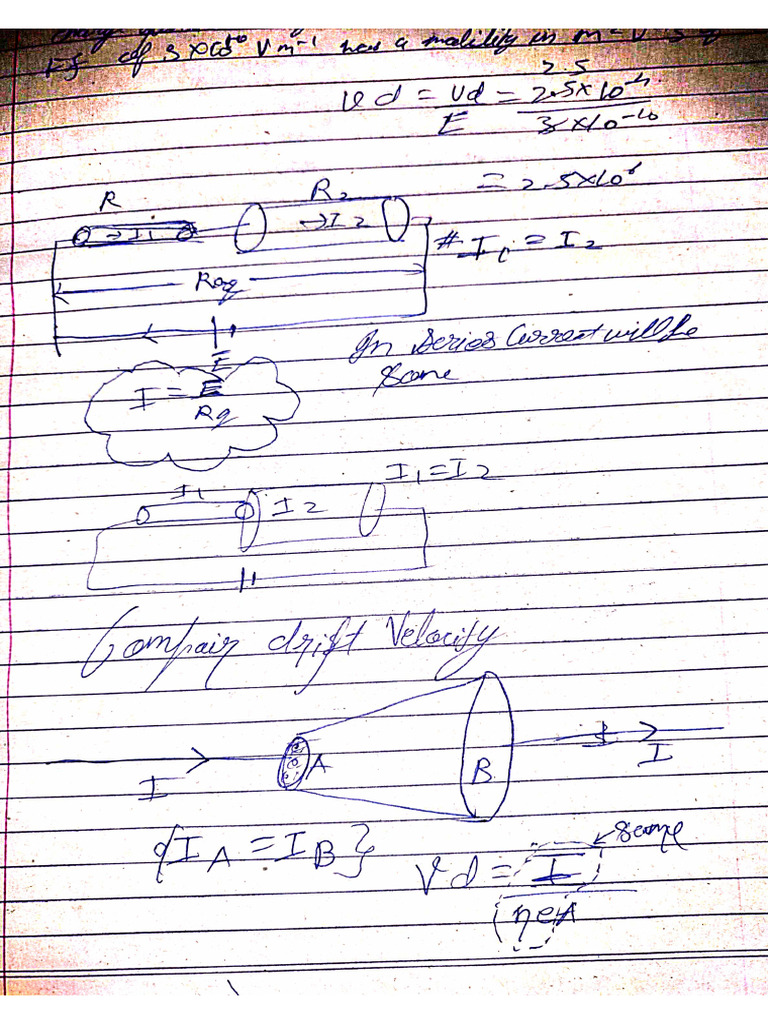 Ef of 3 × 10⁻¹⁰ Vm⁻¹ has a mobility in m
2.5
Vd = Vd / E = 2.5×10⁻⁴ / 3×10⁻¹⁰
= 2.5×10⁶
R R₂
→I₁ →I2
# I₁ = I₂
Req
E
In Series Current will be
Same
I = E / Rq
I₁ I2 I₁=I2
Compair drift Velocity
A B
I I
{I_A = I_B}
same
Vd = I / neA